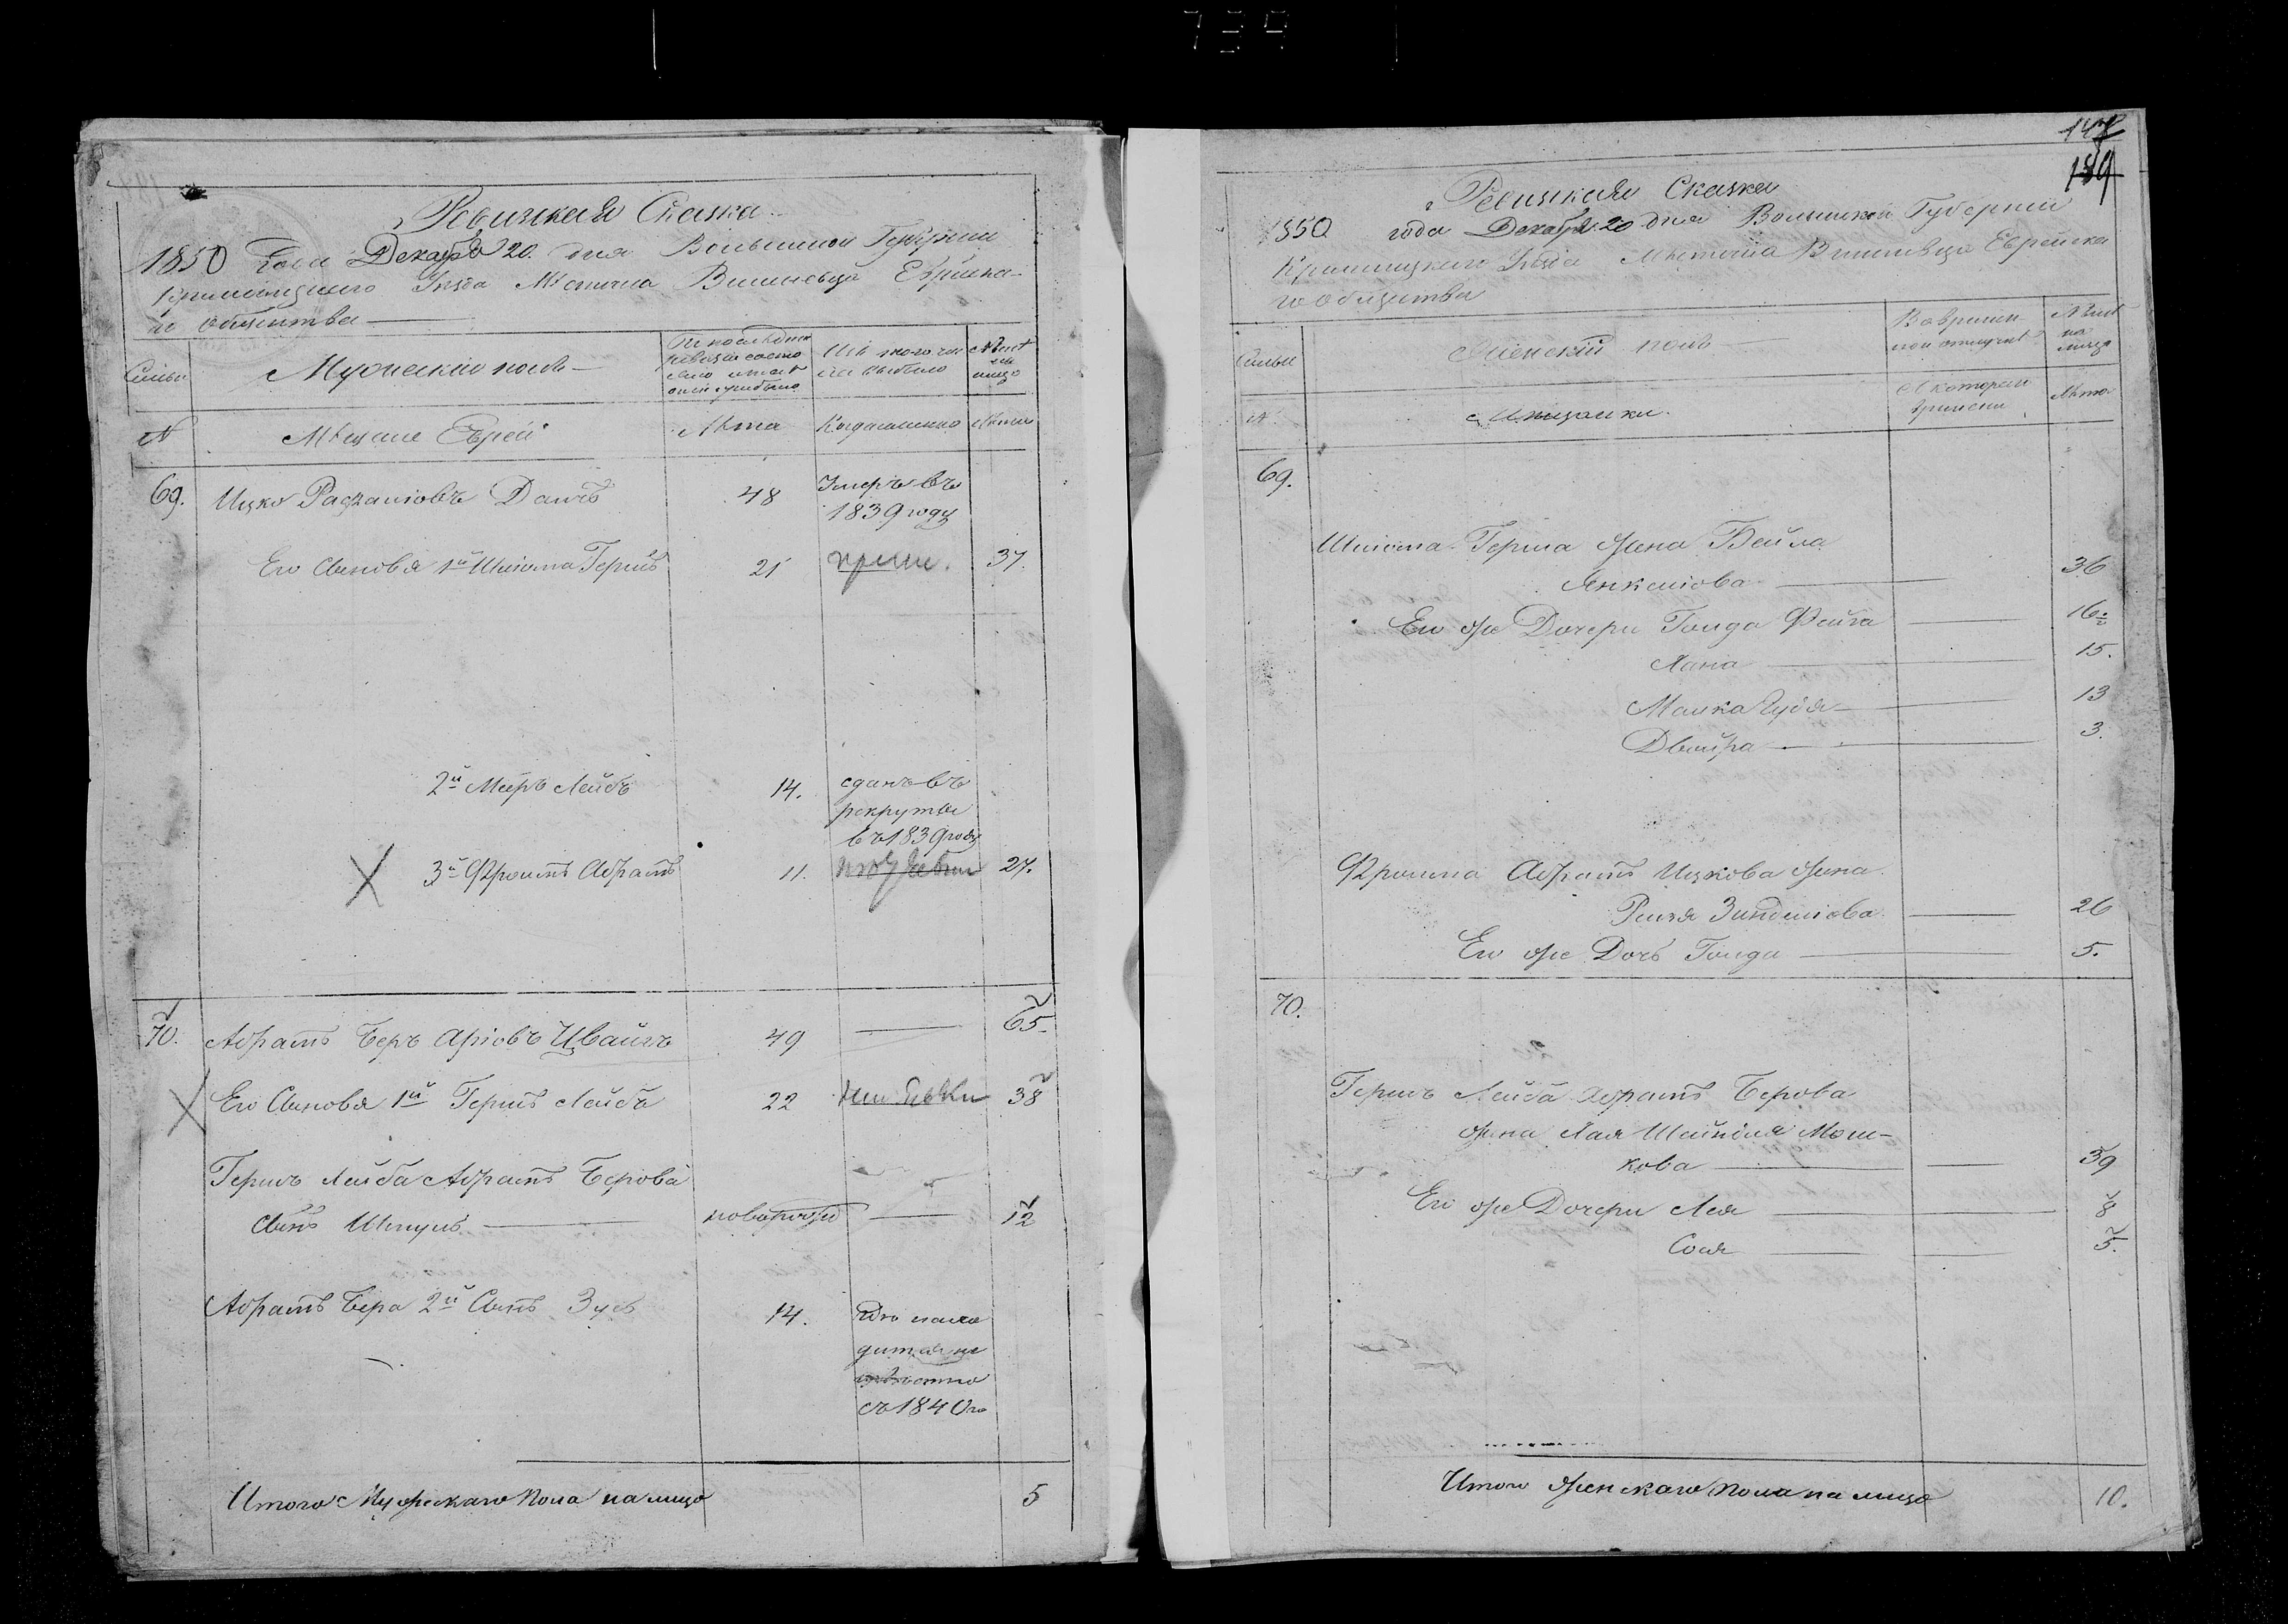 739
Ревизкая Сказка
1850 Года Декабря 20. дня Волынской Губернии
Кременецкого Уезда Местечка Вишневца Еврейска-
го общества
Семьи
Мужеский полъ
По последней
ревизии состо
яло и после
оной прибыло
Изъ того чис
ла выбыло
Ныне
на
лицо
№
Мещане Евреи
Лета
Когда именно
Лета
69.
Ицко Рафаловъ Данчъ
48
Умеръ въ
1839 году
Его Сыновья 1й Шлома Гершъ
21
37.
2й Меръ Лейбъ
14.
сданъ въ
рекруты
въ 1839 году
3й Фроимъ Абрамъ
11.
27.
70.
Абрамъ Беръ Арiовъ Цвайгъ
49
65.
Его Сыновья 1й Гершъ Лейбъ
22
38
Гершъ Лейба Абрамъ Берова
Сынъ Шмуль
новорожд
12
Абрамъ Бера 2й Сынъ Зусь
14.
Где нахо
дится не
известно
съ 1840 го
Итого Мужескаго пола на лицо
5
147
189
Ревизкая Сказка
1850 года Декабря 20 дня Волынской Губернии
Кременецкого Уезда Местечка Вишневца Еврейска
го общества
Семьи
Женский полъ
Во времен-
ной отлучке
Ныне
на
лицо
№
Мещанки.
С котораго
времени
Лета
69.
Шлiома Герша жена Бейла
Янкелiова
36
Его же Дочери Голда Фейга
16
Хана
15.
Малка Гудя
13
Двойра
3.
Фроима Абрамъ Ицкова жена
Рейзя Зинделiова
26
Его же Дочь Голда
5.
70.
Гершъ Лейба Абрамъ Берова
жена Хая Шейндля Мош-
кова
39
Его же Дочери Лея
8
Сося
5.
Итого женскаго пола на лицо
10.